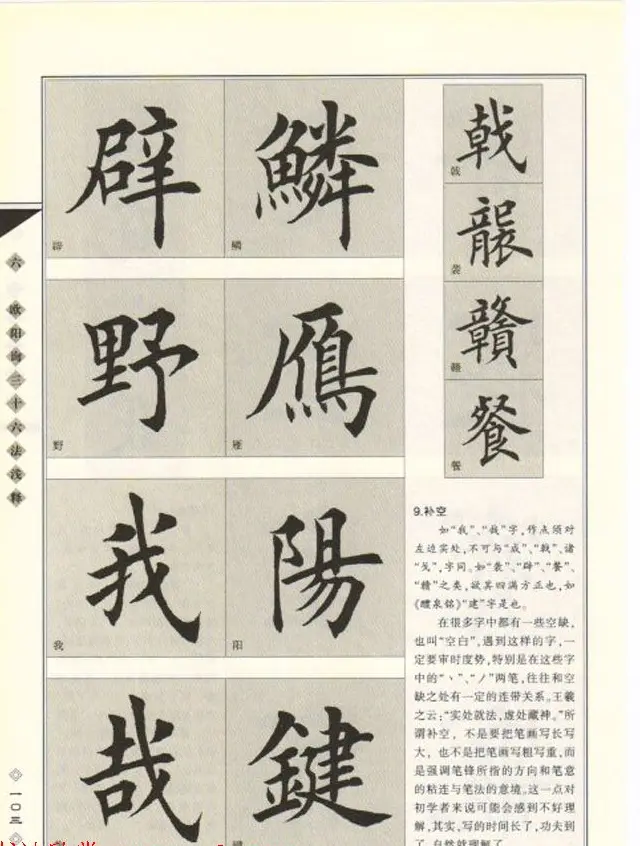 六 欧阳询三十六法浅释
一〇三
辟
鳞
野
雁
我
阳
哉
键
戟
袭
赣
餐
辟
鳞
野
雁
我
阳
戟
袭
赣
餐
9.补空
如“我”、“哉”字,作点须对
左边实处,不可与“成”、“戟”、诸
“戈”,字同。如“袭”、“辟”、“餐”、
“赣”之类,欲其四满方正也,如
《醴泉铭》“建”字是也。
在很多字中都有一些空缺,
也叫“空白”,遇到这样的字,一
定要审时度势,特别是在这些字
中的“丶”、“丿”两笔,往往和空
缺之处有一定的连带关系。王羲
之云:“实处就法,虚处藏神。”所
谓补空,不是要把笔写长写
大,也不是把笔写粗写重,而
是强调笔锋所指的方向和笔意
的粘连与笔法的意境。这一点对
初学者来说可能会感到不好理
解,其实,写的时间长了,功夫到
了,自然就理解了。